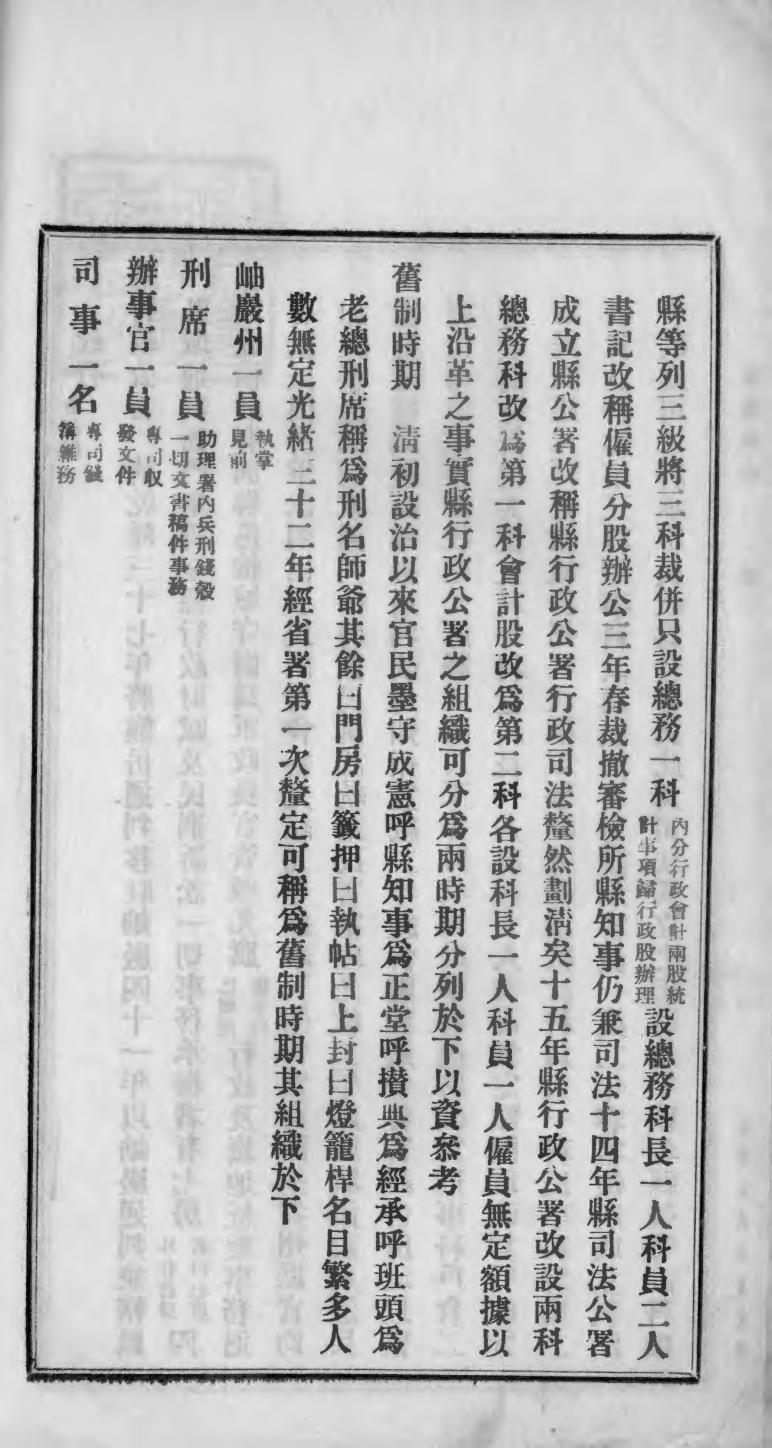 縣等列三級將三科裁併只設總務一科內分行政會計兩股統計事項歸行政股辦理設總務科長一人科員二人
書記改稱僱員分股辦公三年春裁撤審檢所縣知事仍兼司法十四年縣司法公署
成立縣公署改稱縣行政公署行政司法釐然劃淸矣十五年縣行政公署改設兩科
總務科改爲第一科會計股改爲第二科各設科長一人科員一人僱員無定額據以
上沿革之事實縣行政公署之組織可分爲兩時期分列於下以資參考
舊制時期　淸初設治以來官民墨守成憲呼縣知事爲正堂呼攢典爲經承呼班頭爲
老總刑席稱爲刑名師爺其餘曰門房曰籤押曰執帖曰上封曰燈籠桿名目繁多人
數無定光緒三十二年經省署第一次釐定可稱爲舊制時期其組織於下
岫巖州一員執掌見前
刑席一員助理署內兵刑錢穀一切文書稿件事務
辦事官一員專司收發文件
司事一名專司錢簿雜務